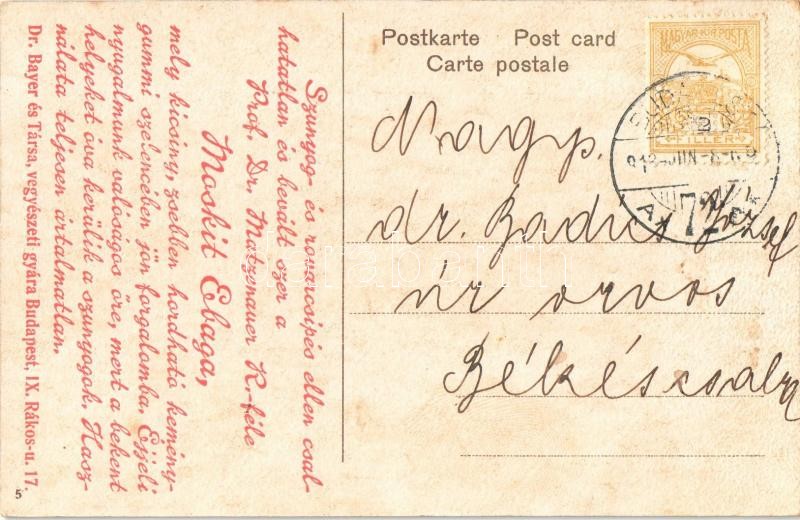 Szunyog- és rovarcsipés ellen csal-
hatatlan és bevált szer a
Prof. Dr. Matzenauer R.-féle
Moskit Ebaga,
mely kicsiny, zsebben hordható kemény-
gummi szelencében jön forgalomba. Éjjeli
nyugalmunk valóságos őre, mert a bekent
helyeket óva kerülik a szunyogok. Hasz-
nálata teljesen ártalmatlan.
Dr. Bayer és Társa, vegyészeti gyára Budapest, IX. Rákos-u. 17.
5
Postkarte Post card
Carte postale
MAGYAR KIR. POSTA
2
FILLER
72
Nagys.
dr. Badics József
úr orvos
Békéscsaba